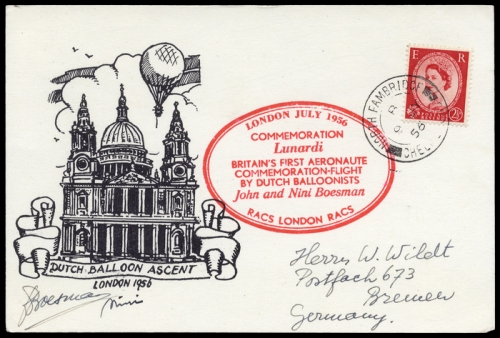 E R
2½
NORTH FAMBRIDGE
CHEL
56
LONDON JULY 1956
COMMEMORATION
Lunardi
BRITAIN'S FIRST AERONAUTE
COMMEMORATION-FLIGHT
BY DUTCH BALLOONISTS
John and Nini Boesman
RACS LONDON RACS
DUTCH BALLOON ASCENT
LONDON 1956
JBoesman Nini
Herrn W. Wildt
Postfach 673
Bremen
Germany.